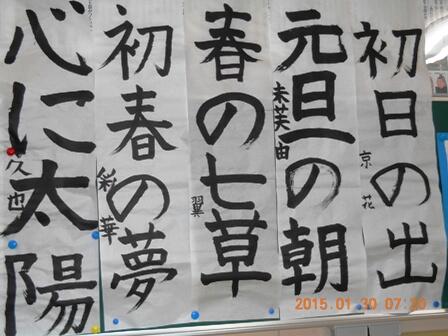 初日の出
京花
元旦の朝
未芙由
春の七草
翼
初春の夢
彩華
心に太陽
久也
2015.01.30 07:30